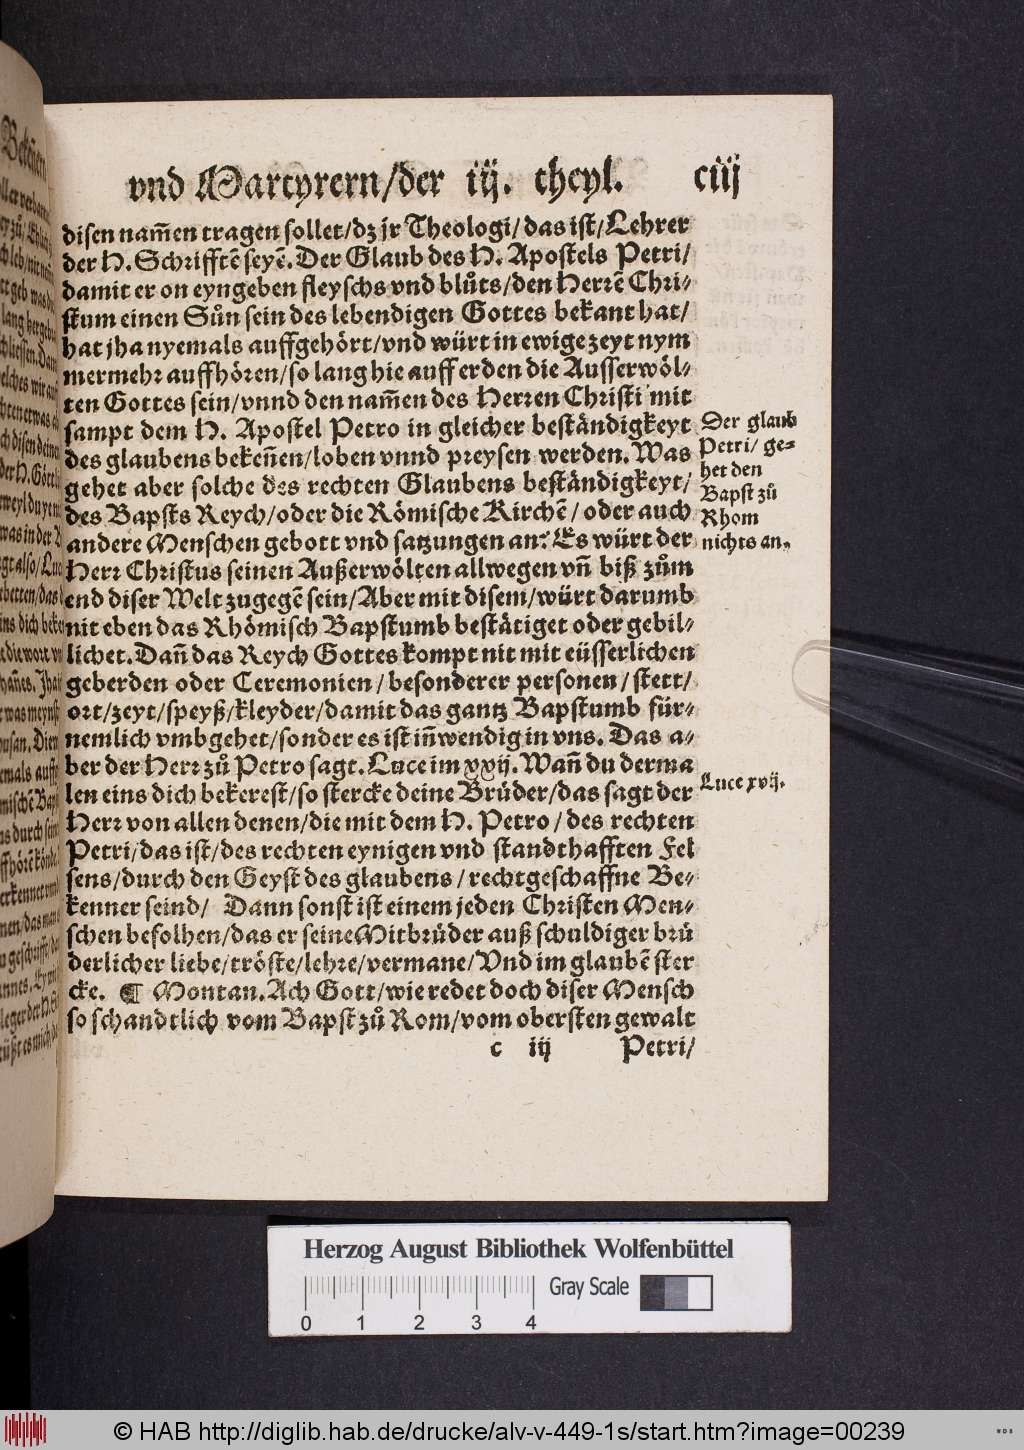 vnd Martyrern/der iij. theyl. ciij
disen nam̃en tragen sollet/dz jr Theologi/das ist/Lehrer
der H. Schrifftẽ seyẽ. Der Glaub des H. Apostels Petri/
damit er on eyngeben fleyschs vnd blůts/den Herrẽ Chri⸗
stum einen Sůn sein des lebendigen Gottes bekant hat/
hat jha nyemals auffgehört/vnd würt in ewige zeyt nym
mermehr auffhören/so lang hie auff erden die Ausserwöl⸗
ten Gottes sein/vnnd den nam̃en des Herren Christi mit
sampt dem H. Apostel Petro in gleicher beständigkeyt
des glaubens beken̄en/loben vnnd preysen werden. Was
gehet aber solche des rechten Glaubens beständigkeyt/
des Bapsts Reych/oder die Römische Kirchẽ/oder auch
andere Menschen gebott vnd satzungen an? Es würt der
Herr Christus seinen Außerwölten allwegen vn̄ biß zům
end diser Welt zugegẽ sein/Aber mit disem/würt darumb
nit eben das Rhömisch Bapstumb bestätiget oder gebil⸗
lichet. Dan̄ das Reych Gottes kompt nit mit eüsserlichen
geberden oder Ceremonien/besonderer personen/stett/
ort/zeyt/speyß/kleyder/damit das gantz Bapstumb für⸗
nemlich vmbgehet/sonder es ist in̄wendig in vns. Das a⸗
ber der Herr zů Petro sagt. Luce im xxij. Wan̄ du derma
len eins dich bekerest/so stercke deine Brüder/das sagt der
Herr von allen denen/die mit dem H. Petro/des rechten
Petri/das ist/des rechten eynigen vnd standthafften Fel
sens/durch den Geyst des glaubens/rechtgeschaffne Be⸗
kenner seind/ Dann sonst ist einem jeden Christen Men⸗
schen befolhen/das er seine Mitbrüder auß schuldiger brü
derlicher liebe/tröste/lehre/vermane/Vnd im glaubẽ ster
cke. ¶ Montan. Ach Gott/wie redet doch diser Mensch
so schandtlich vom Bapst zů Rom/vom obersten gewalt
c iij Petri/
Der glaub
Petri/ ge⸗
het den
Bapst zů
Rhom
nichts an.
Luce xvij.
Herzog August Bibliothek Wolfenbüttel
Gray Scale
0 1 2 3 4
© HAB http://diglib.hab.de/drucke/alv-v-449-1s/start.htm?image=00239